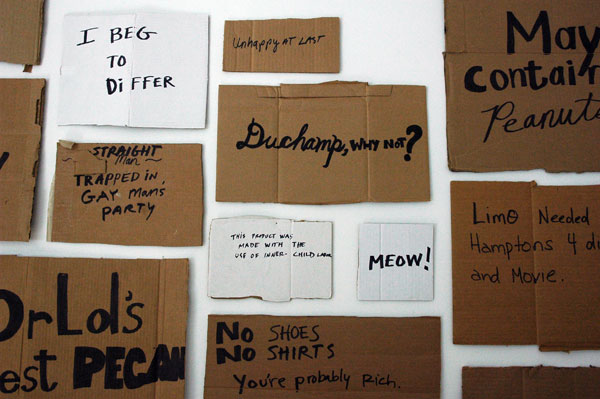 I BEG
TO
DiFFER
Unhappy AT LAST
May
contain
Peanuts
Duchamp, WHY NOT?
STRAIGHT
Man
TRAPPED IN
GAY Man's
PARTY
THIS PRODUCT WAS
MADE WITH THE
USE OF INNER-CHILD LABOR
MEOW!
Limo Needed
Hamptons 4
and Movie.
OrLol's
est PECAN
No SHOES
NO SHIRTS
You're probably Rich.